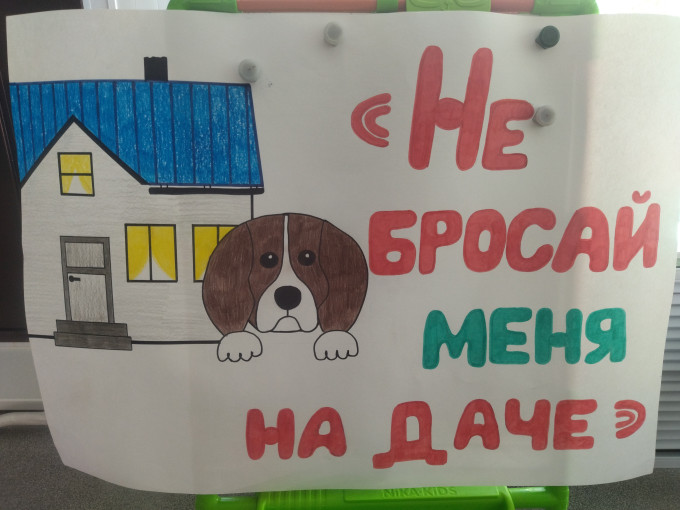 «Не
БРОСАЙ
МЕНЯ
НА ДАЧЕ»
NIKA-KIDS